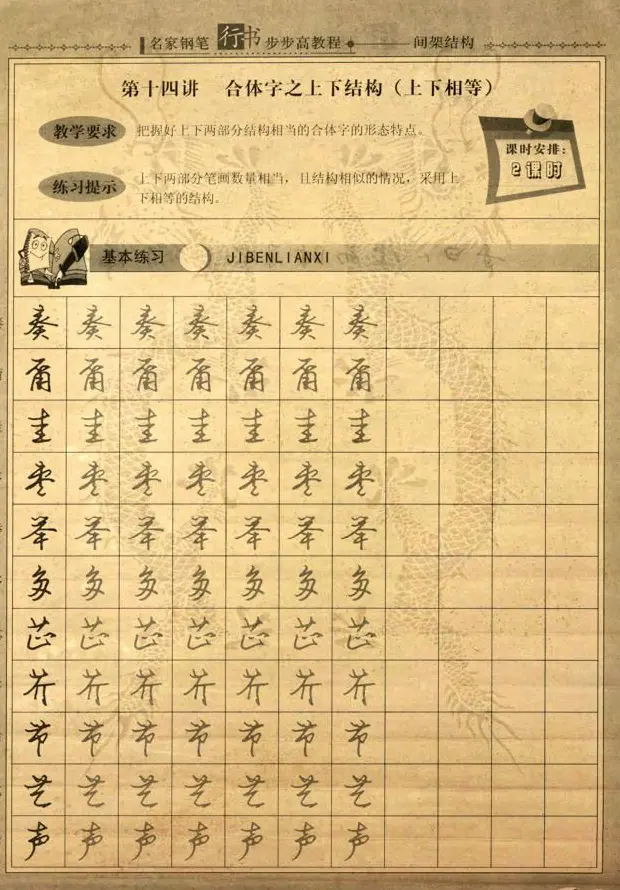 名家钢笔 行书 步步高教程 间架结构
第十四讲 合体字之上下结构（上下相等）
教学要求 把握好上下两部分结构相当的合体字的形态特点。
练习提示 上下两部分笔画数量相当，且结构相似的情况，采用上
下相等的结构。
课时安排：
2课时
基本练习 JIBENLIANXI
奏 奏 奏 奏 奏 奏 奏
甭 甭 甭 甭 甭 甭 甭
圭 圭 圭 圭 圭 圭 圭
枣 枣 枣 枣 枣 枣 枣
举 举 举 举 举 举 举
多 多 多 多 多 多 多
芷 芷 芷 芷 芷 芷 芷
芥 芥 芥 芥 芥 芥 芥
声 声 声 声 声 声 声